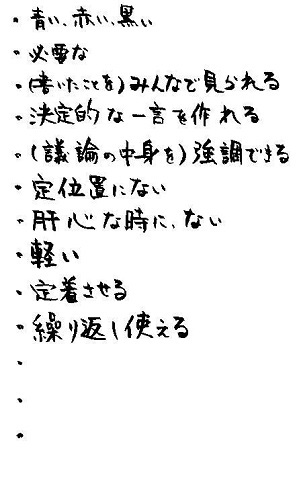 ・青い、赤い、黒い
・必要な
・(書いたことを)みんなで見られる
・決定的な一言を作れる
・(議論の中身を)強調できる
・定位置にない
・肝心な時に、ない
・軽い
・定着させる
・繰り返し使える
・
・
・